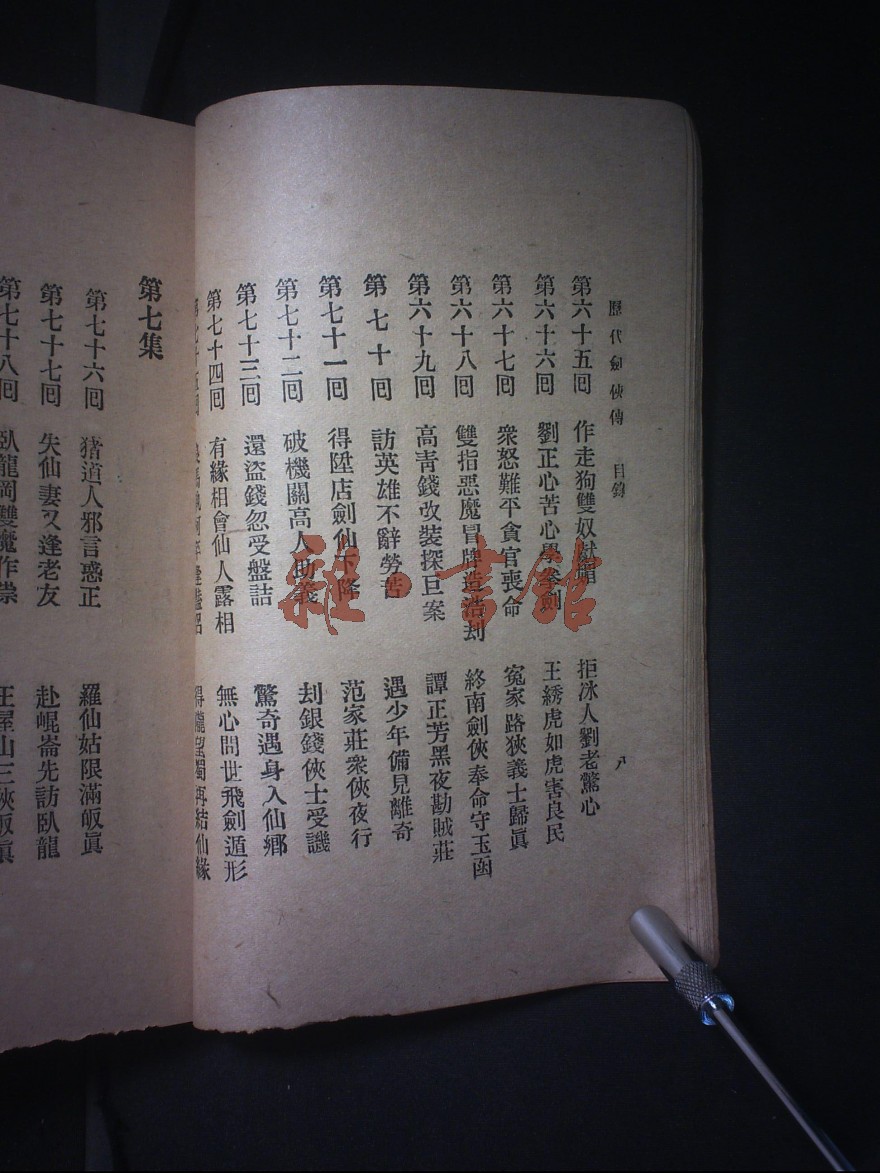 歷代劍俠傳 目錄 八
第六十五囘 作走狗雙奴獻媚 拒冰人劉老驚心
第六十六囘 劉正心苦心學拳劍 王綉虎如虎害良民
第六十七囘 衆怒難平貪官喪命 冤家路狹義士歸眞
第六十八囘 雙指惡魔冒牌造浩刦 終南劍俠奉命守玉函
第六十九囘 高青錢改裝探巨案 譚正芳黑夜勘賊莊
第七十囘 訪英雄不辭勞苦 遇少年備見離奇
第七十一囘 得陞店劍仙下降 范家莊衆俠夜行
第七十二囘 破機關高人助義 刦銀錢俠士受譏
第七十三囘 還盜錢忽受盤詰 驚奇遇身入仙鄉
第七十四囘 有緣相會仙人露相 無心問世飛劍遁形
得隴望蜀再結仙緣
第七集
第七十六囘 猪道人邪言惑正 羅仙姑限滿皈眞
第七十七囘 失仙妻又逢老友 赴崐崙先訪臥龍
第七十八囘 臥龍岡雙魔作祟 王屋山三俠皈眞
雜·書館